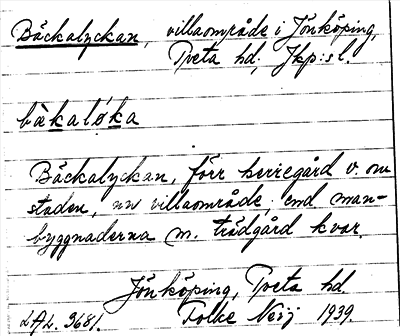 Bäckalyckan, villaområde i Jönköping,
Tveta hd, Jkp:s l.
bàkaløka
Bäckalyckan, förr herregård v. om
staden, nu villaområde end man-
byggnaderna m. trädgård kvar.
Jönköping, Tveta hd
LAL. 3681. Folke Neij 1939.